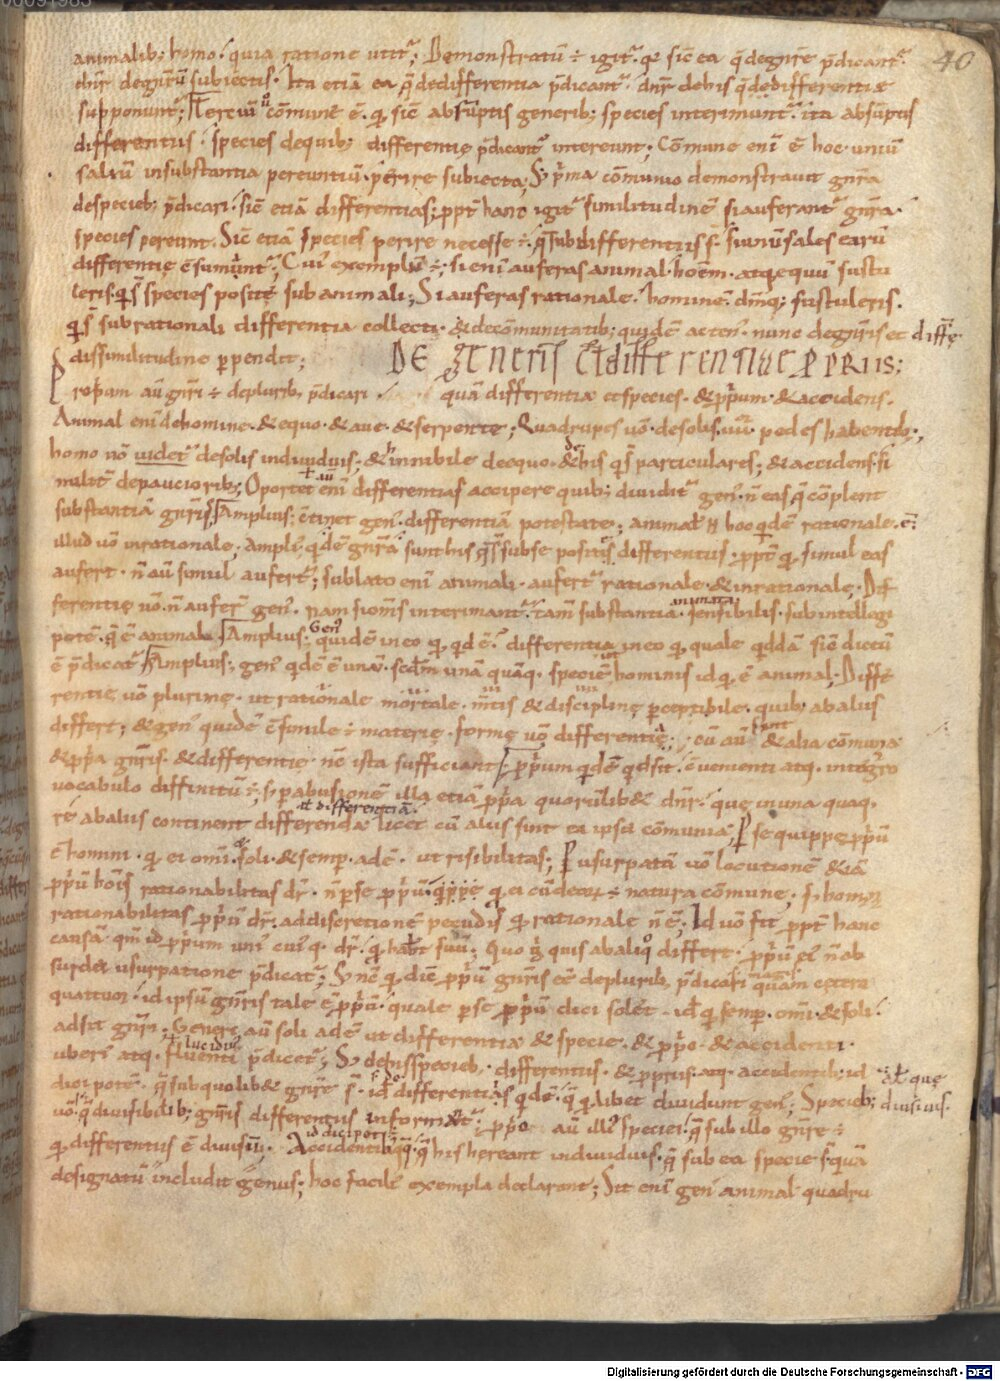 animalib; homo. quia ratione utit᷑; Demonstratū ÷ igit᷑. qđ sic ea q̄ de gn̄re p̄dicant᷑.
dn̄r de gn̄rū subiectis. Ita etiā ea q̄ de differentia p̄dicant᷑. dn̄r de his q̄ de differentia
supponunt᷑; Terciū cōmune ē. qđ sic absūptis generib; species interimunt᷑. ita absūptis
differentiis. species de quib; differentię p̄dicant᷑ intereunt; Cōmune enī ē hoc. uniū
saliū in substantia pereuntiū. perire subiecta; S; p̄ma cōmunio demonstrauit gn̄ra
de specieb; p̄dicari. sic etiā differentias; ppt̄ hanc igit᷑ similitudinē si auferant᷑ gn̄ra.
species pereunt. Sic etiā species perire necesse ÷. q̄ sub differentiis s̄. si uniūsales earū
differentię cōsumunt᷑; Cui exemplū ÷; si enī auferas animal. hoēm. atq; equū sustu
leris. q̄ s̄ species positę sub animali; Si auferas rationale. hominē. dm̄q; sustuleris.
q̄ s̄ sub rationali differentia collecti. & de cōmunitatib; quidē acten᷑. nunc de gn̄ris et differ̄ę
dissimilitudine perpendit;
DE generis Et differentiae PPRIIS;
Propriam aū gn̄ri ÷ de plurib; p̄dicari quā differentia et species. & pp̄um. & accidens.
Animal enī de homine. & equo. & aue. & serpente; Quadrupes uō. de solis .iiii. pedes habentib;
homo uō uidet᷑ de solis indiuiduis; & hinnibile de equo. & de his q̄ s̄ particulares; & accidens si
militer de paucioribus; Oportet aū enī differentias accipere quib; diuidit᷑ gen᷑. n̄ eas q̄ cōplent
substantiā gn̄ris; Amplius; c̄tinet gen᷑. differentiā potestate; animal n̄ hoc qđē rationale. ē.
illud uō inrationale; ampli᷑ qđē gn̄ra sunt his q̄ s̄ sub se positis differentiis. ppt̄ qđ simul eas
aufert. n̄ aū simul aufert᷑; sublato enī animali. aufert᷑ rationale. & inrationale; Dif
ferentię uō. n̄ aufer̄ gen᷑. nam si om̄s interimant᷑. tam̄ substantia animata sensibilis. sub intellegi
potē. q̄ ē animal; Amplius; Gen᷑ quidē in eo qđ qđ ē. differentia in eo qđ quale qddā sic dictū
ē p̄dicat᷑; Amplius; gen᷑ qđē ē unū. scđm unā quāq. speciē ut hominis id qđ ē animal; Diffe
rentię uō plurimę. ut rationale mortale. m̄tis & disciplinę perceptibile. quib; ab aliis
differt; & gen᷑ quidē c̄simile ÷ materię. formę uō differentia; cū aū sint & alia cōmunia
& pp̄a gn̄ris. & differentię. nc̄ ista sufficiant; Pp̄um qđē qd sit. c̄uenienti atq. integro
uocabulo diffinitū ÷; s; p abusionē illa etiā pp̄a quorūlib& dn̄r. quę in una quaq.
re ab aliis continent ł differentiā differenda licet cū aliis sint ea ipsa cōmunia; Per se quippe pp̄ū
ē homini. qđ ei omī. & soli. & semp. adē. ut risibilitas; P usurpatā uō locutionē & iā
pp̄ū hōis rationabilitas dr̄. n̄ per se pp̄ū. quippe qđ ei cū deor; ÷ natura cōmune; s; homin
rationabilitas pp̄ū dr̄. ad discretionē pecudis qđ rationale n̄ ē; Id uō fit ppt̄ hanc
causā. qm̄ id pp̄um uni cui q. dr̄. qđ habet suū; Quo g̊ quis ab alio differt. pp̄ū ei᷑ n̄ ob
surdet usurpatione p̄dicat᷑; S; nc̄ qđ dic̄ pp̄ū gn̄ris eē de plurib; p̄dicari magis quam cetera
quattuor. id ipsū gn̄ris tale ē pp̄ū. quale per se pp̄ū dici solet. id qđ semp. omī. & soli.
adsit gn̄ri; Generi aū soli adē ut differentia & specie. & pp̄o. & accidenti.
uberi᷑ atq. lucidius fluenti p̄dicet᷑; S; de his specieb;. differentiis. & ppriis. atq. accidentib; id
dici potē. q̄ sub quolib& gn̄re s̄. id differentias qđē. q̄ qđlibet diuidunt gen᷑; Specieb; ał quę diuisiuis.
uō. q̄ diuisibilib; gn̄ris differentiis informant᷑; pp̄o aū illi᷑ speciei. q̄ sub illo gn̄re ÷
qđ differentiis ē diuisū. id dici potē Accidentibq;. q̄ his hereant indiuiduis. q̄ sub ea specie s̄. quā
designatū includit genus; hoc facile exempla declarant; Sit enī gen᷑ animal quadru
40
Digitalisierung gefördert durch die Deutsche Forschungsgemeinschaft - DFG